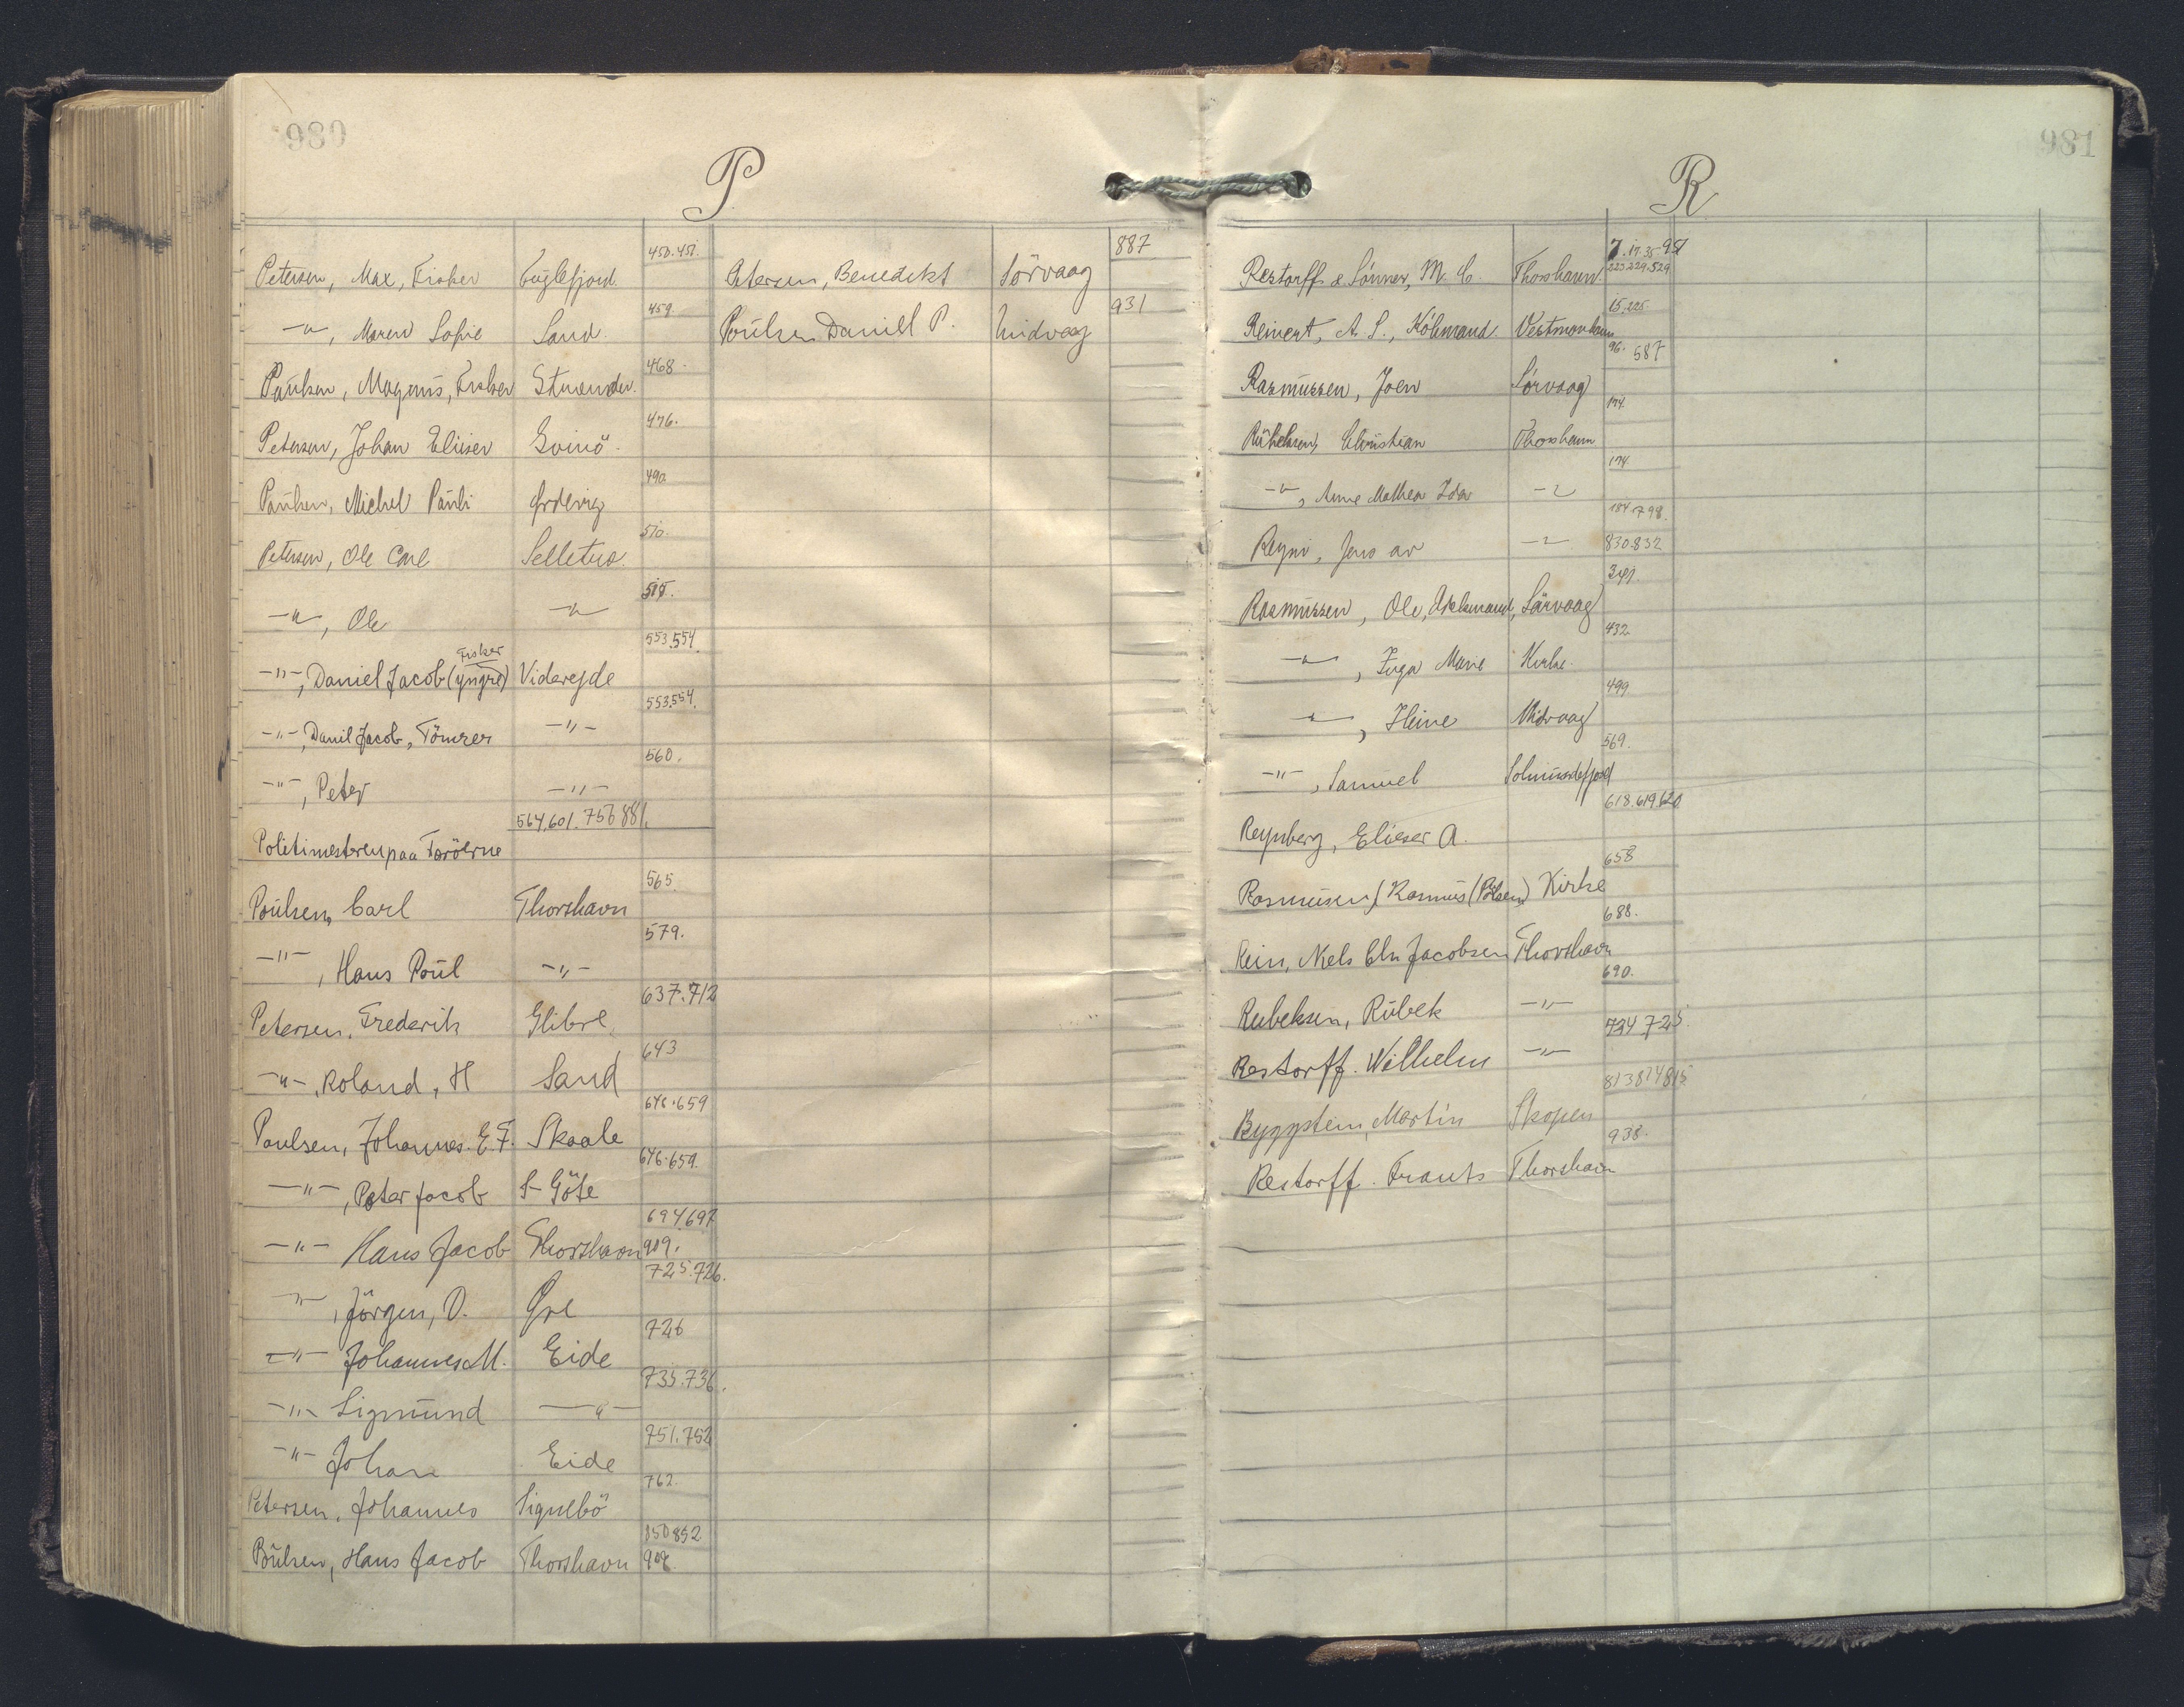 980
P
Petersen, Max, Fisker Fuglefjord. 450.451.
—"—, Maren Sofie Sand. 459.
Paulsen, Magnus, Fisker Strender. 468.
Petersen, Johan Elieser Svinö. 476.
Paulsen, Michel Pauli Ördevig 490
Petersen, Ole Carl Selletræ. 510.
—"—, Ole —"— 515.
—"—, Daniel Jacob (yngre) Fisker Viderejde 553.554.
—"—, Daniel Jacob, Tömrer —"— 553.554.
—"—, Peter —"— 560.
Politimesteren paa Færöerne 564.601.756 881.
Poulsen, Carl Thorshavn 565.
—"—, Hans Poul —"— 579.
Petersen, Frederik Glibre 637.712
—"—, Roland, H Sand 643
Poulsen, Johannes. E. F. Skaale 646.659
—"—, Peter Jacob S-Göte 646.659.
—"— Hans Jacob Thorshavn 694.697 909.
—"—, Jörgen, D. Gre 725.726.
—"— Johannes M. Eide 726
—"— Sigmund —"— 735.736.
—"— Johan Eide 751.752
Petersen, Johannes Signebö 762.
Poulsen, Hans Jacob Thorshavn 850 852 908
Petersen, Benedikt Sörvaag 887
Poulsen Daniel P. Midvaag 931
981
R
Restorff & Sönner, M. C. Thorshavn. 7.17.35.951 223.229.529
Reinert, A. S., Köbmand. Vestmanhavn 15.225
Rasmussen, Joen Sörvaag 96. 587
Rübeksen, Christian Thorshavn 174.
—"—, Anne Mathea Ida —"— 174
Reyni, Jens av —"— 184.798. 830.832
Rasmussen, Ole, Avlsmand, Sörvaag 341.
—"—, Inga Marie Kirke. 432
—"—, Heine Midvaag 499
—"—, Samuel Solmundefjord 569.
Reynberg, Elieser A. 618.619.620
Rasmussen, Rasmus (Poulsen) Kirke 658
Rein, Niels Chr. Jacobsen Thorshavn 688.
Rubeksen, Rübek —"— 690.
Restorff. Wilhelm —"— 724 725
Martin Skopen 813 814 815
Restorff. Frants Thorshavn 938.